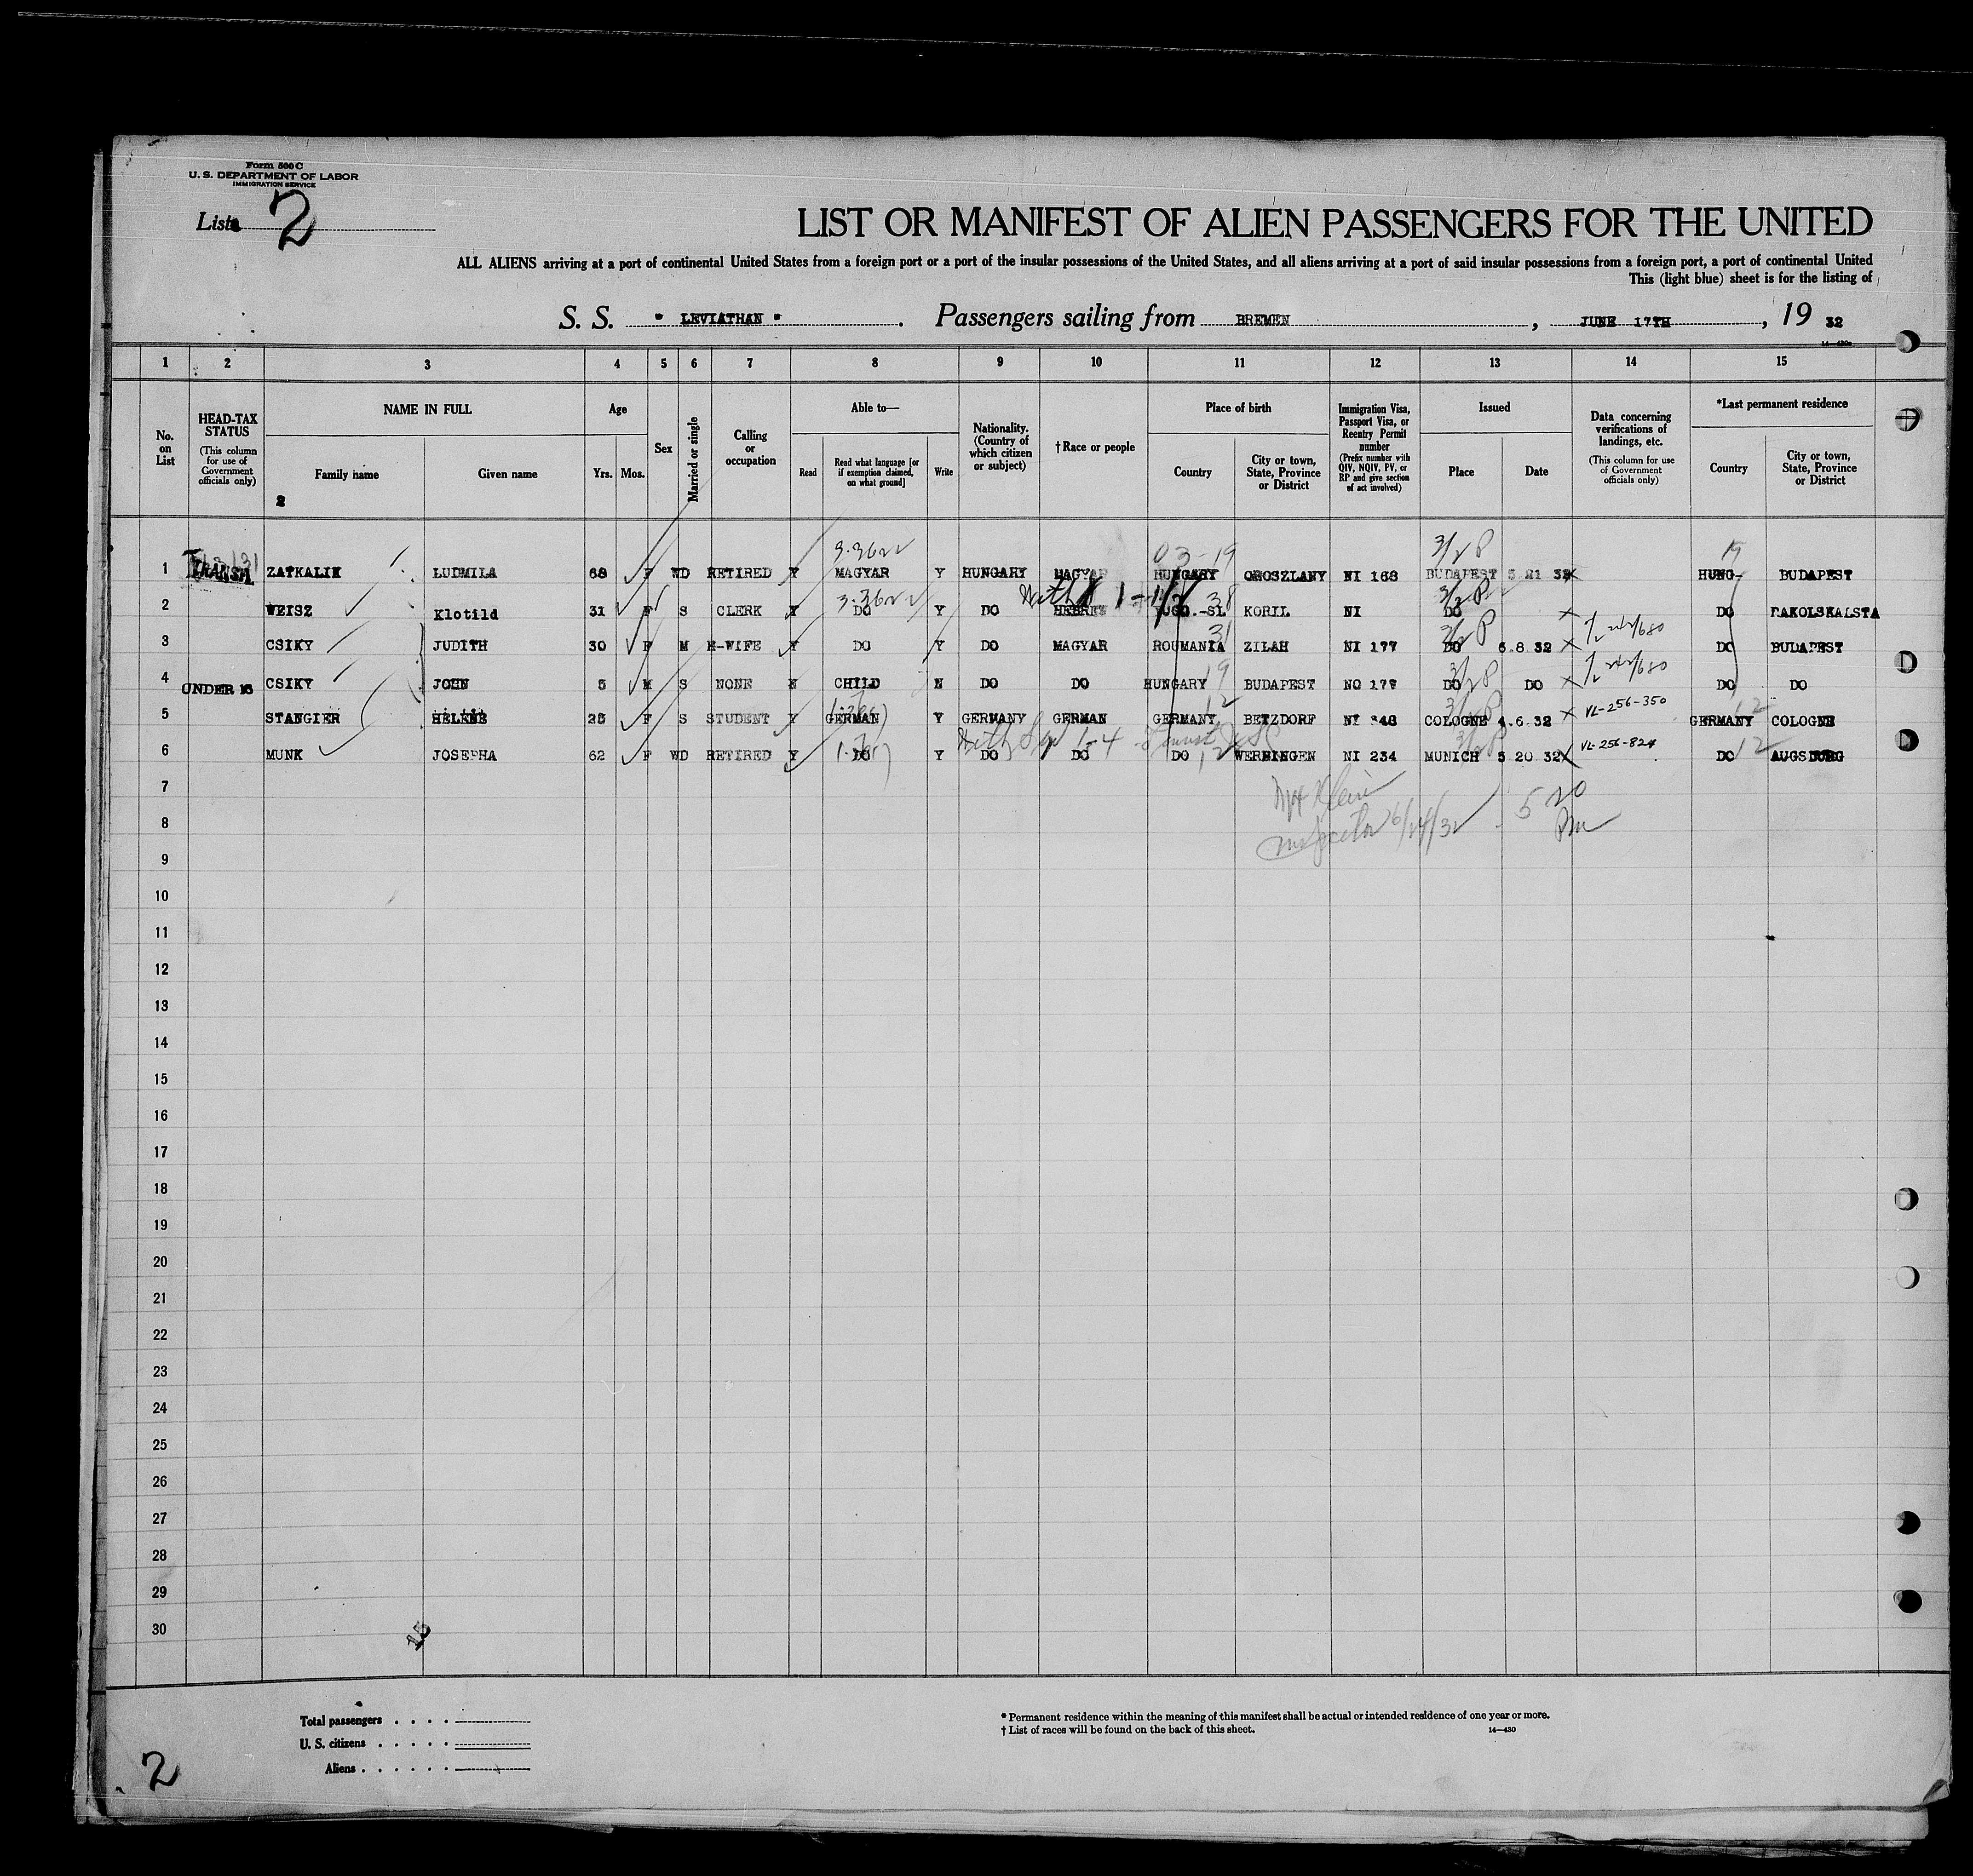 Form 500 C
U. S. DEPARTMENT OF LABOR
IMMIGRATION SERVICE
List 2
LIST OR MANIFEST OF ALIEN PASSENGERS FOR THE UNITED
ALL ALIENS arriving at a port of continental United States from a foreign port or a port of the insular possessions of the United States, and all aliens arriving at a port of said insular possessions from a foreign port, a port of continental United
This (light blue) sheet is for the listing of
S. S. " LEVIATHAN " . Passengers sailing from BREMEN , JUNE 17TH , 19 32
1 2 3 4 5 6 7 8 9 10 11 12 13 14 15
No. on List
HEAD-TAX STATUS (This column for use of Government officials only)
NAME IN FULL
Family name Given name
2
Age
Yrs. Mos.
Sex
Married or single
Calling or occupation
Able to—
Read
Read what language [or if exemption claimed, on what ground]
Write
Nationality. (Country of which citizen or subject)
† Race or people
Place of birth
Country
City or town, State, Province or District
Immigration Visa, Passport Visa, or Reentry Permit number (Prefix number with QIV, NQIV, PV, or RP and give section of act involved)
Issued
Place Date
Data concerning verifications of landings, etc. (This column for use of Government officials only)
*Last permanent residence
Country
City or town, State, Province or District
1 TRANSIT. ZATKALIK LUDMILA 68 F WD RETIRED Y MAGYAR Y HUNGARY MAGYAR HUNGARY OROSZLANY NI 168 BUDAPEST 5 21 32 HUNG- BUDAPEST
2 WEISZ Klotild 31 F S CLERK Y DO Y DO HEBREW YUGO.-SL KORIL NI DO DO RAKOLSKALSTA
3 CSIKY JUDITH 30 F M H-WIFE Y DO Y DO MAGYAR ROUMANIA ZILAH NI 177 DO 6.8 32 DO BUDAPEST
4 UNDER 16 CSIKY JOHN 5 M S NONE N CHILD N DO DO HUNGARY BUDAPEST NO 177 DO DO DO DO
5 STANGIER HELENE 25 F S STUDENT Y GERMAN Y GERMANY GERMAN GERMANY BETZDORF NI 348 COLOGNE 4.6.32 VL-256-350 GERMANY COLOGNE
6 MUNK JOSEPHA 62 F WD RETIRED Y DO Y DO DO DO WERTINGEN NI 234 MUNICH 5 20 32 VL-256-824 DO AUGSBURG
7
Klein
8 Inspector 6/24/32 5 20 Pm
9
10
11
12
13
14
15
16
17
18
19
20
21
22
23
24
25
26
27
28
29
30
15
Total passengers . . . .
U. S. citizens . . . . .
Aliens . . . . . .
* Permanent residence within the meaning of this manifest shall be actual or intended residence of one year or more.
† List of races will be found on the back of this sheet.
14—430
2